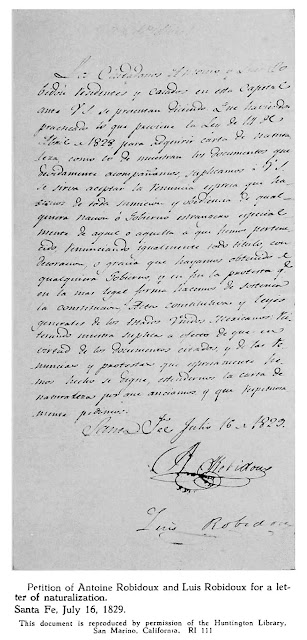 Los Ciudadanos Antonio y Luis Ro-
bidou residentes y casados en esta Capital
ante V.S. se presentan diciendo: Que habiendo
practicado lo que previene la Ley de 14 de
Abril de 1828 para adquirir carta de natura-
leza, como lo demuestran los documentos que
devidamente acompañamos, suplicamos á V.S.
se sirva aceptar la renuncia espresa que ha-
cemos de toda sumicion y obediencia de qual-
quiera nacion ó Gobierno estrangero especial-
mente de aquel o aquella a que hemos pertene-
cido, renunciando igualmente todo titulo, con-
decoracion o gracia que hayamos obtenido de
qualquier Gobierno, y en fin la protesta qe
en la mas legal forma hacemos de sostener
la constitucion, Acta constitutiva y Leyes
generales de los Estados Unidos Mexicanos, re-
iterando nuestra suplica a efecto de que en
virtud de los documentos citados, y de las re-
nuncias y protestas que espresamente he-
mos hecho se digne, estendernos la carta de
naturaleza que anciamos y que respetuosa
mente pedimos.
Santa Fee Julio 16 de 1829.
A Robidoux
Luis Robidou
Petition of Antoine Robidoux and Luis Robidoux for a let-
ter of naturalization.
Santa Fe, July 16, 1829.
This document is reproduced by permission of the Huntington Library,
San Marino, California. RI 111